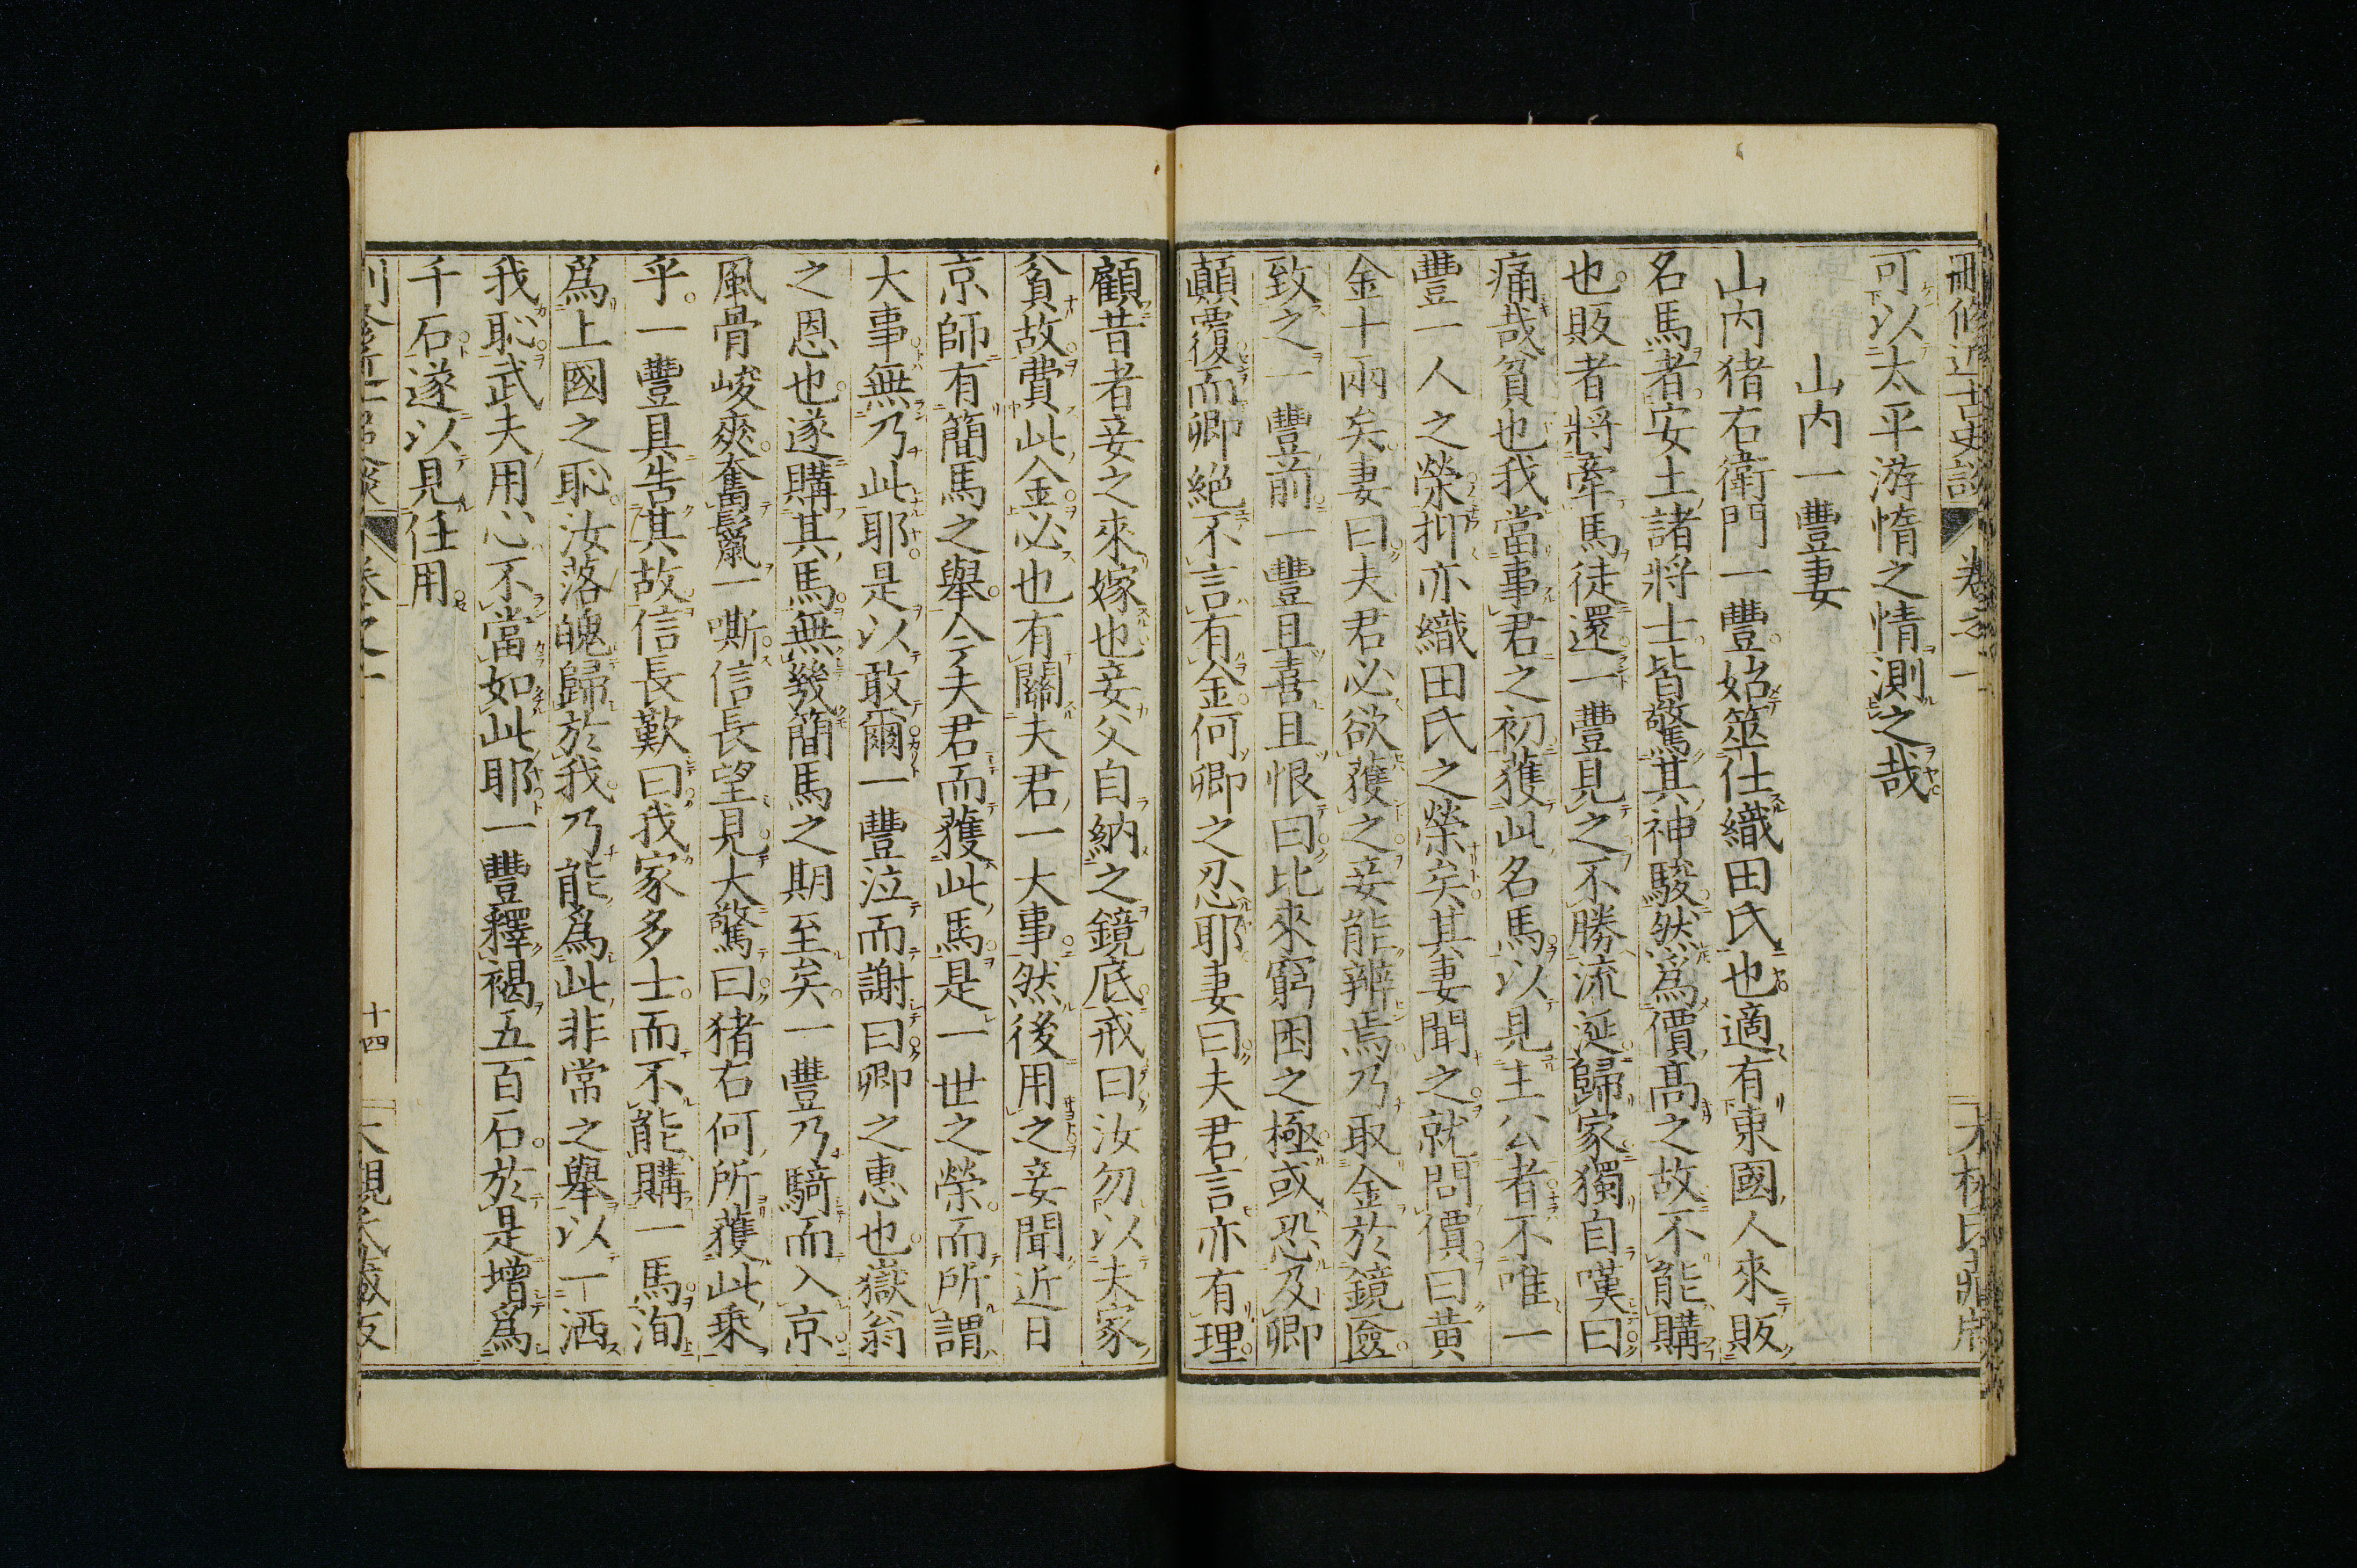 刪修近古史談 卷之一
可以太平游惰之情測之哉
山内一豐妻
山内猪右衛門一豐始筮仕織田氏也適有東國人來販
名馬者安土諸將士皆驚其神駿然爲價高之故不能購
也販者將牽馬徒還一豐見之不勝流涎歸家獨自嘆曰
痛哉貧也我當事君之初獲此名馬以見主公者不唯一
豐一人之榮抑亦織田氏之榮矣其妻聞之就問價曰黃
金十兩矣妻曰夫君必欲獲之妾能辨焉乃取金於鏡匳
致之一豐前一豐且喜且恨曰比來窮困之極或恐及卿
顛覆而卿絕不言有金何卿之忍耶妻曰夫君言亦有理
顧昔者妾之來嫁也妾父自納之鏡底戒曰汝勿以夫家
貧故費此金必也有關夫君一大事然後用之妾聞近日
京師有簡馬之舉今夫君而獲此馬是一世之榮而所謂
大事無乃此耶是以敢爾一豐泣而謝曰卿之惠也嶽翁
之恩也遂購其馬無幾簡馬之期至矣一豐乃騎而入京
風骨峻爽奮鬣一嘶信長望見大驚曰猪右何所獲此乘
乎一豐具告其故信長歎曰我家多士而不能購一馬洵
爲上國之恥汝落魄歸於我乃能爲此非常之舉以一洒
我恥武夫用心不當如此耶一豐釋褐五百石於是增爲
千石遂以見任用
十四